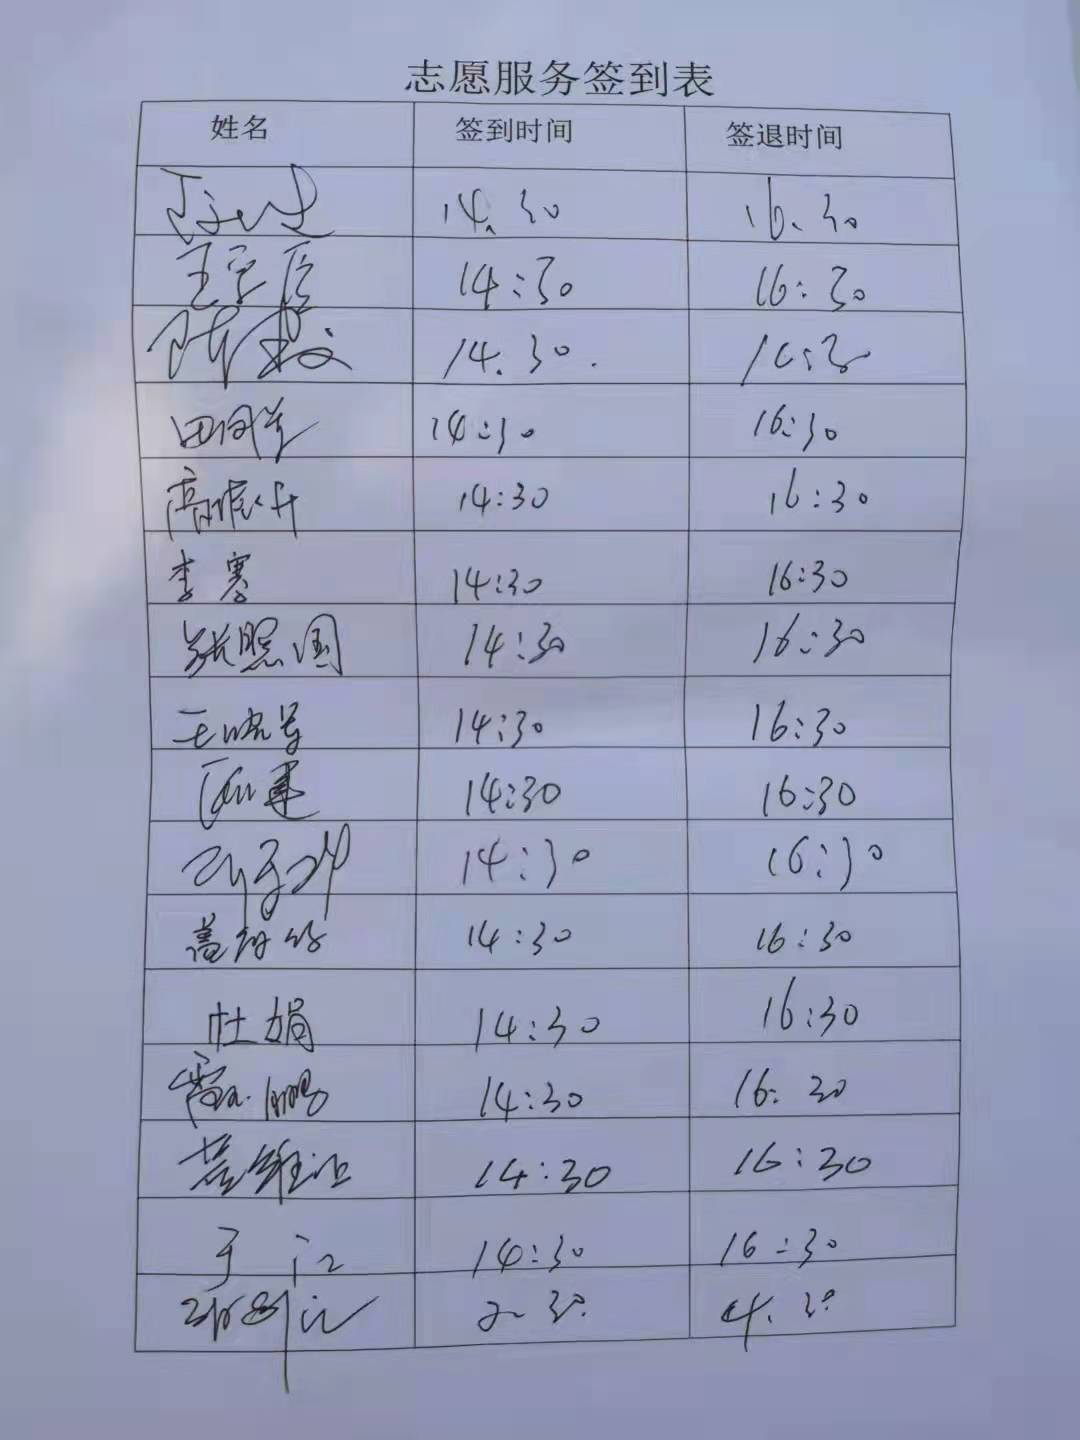 志愿服务签到表
姓名 签到时间 签退时间
14.30 16.30
王 14:30 16:30
陈 14.30. 16:30
田 14:30 16:30
高 14:30 16:30
李寒 14:30 16:30
张照国 14:30 16:30
王晓 14:30 16:30
建 14:30 16:30
14:30 16:30
14:30 16:30
杜娟 14:30 16:30
鹏 14:30 16:30
维 14:30 16:30
于江 14:30 16:30
2.30. 4.30